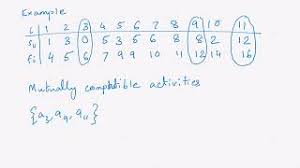 Example
i 1 2 3 4 5 6 7 8 9 10 11
Si 1 3 0 5 3 5 6 8 8 2 12
fi 4 5 6 7 9 9 10 11 12 14 16
Mutually compatible activities
{a3, a9, a11}